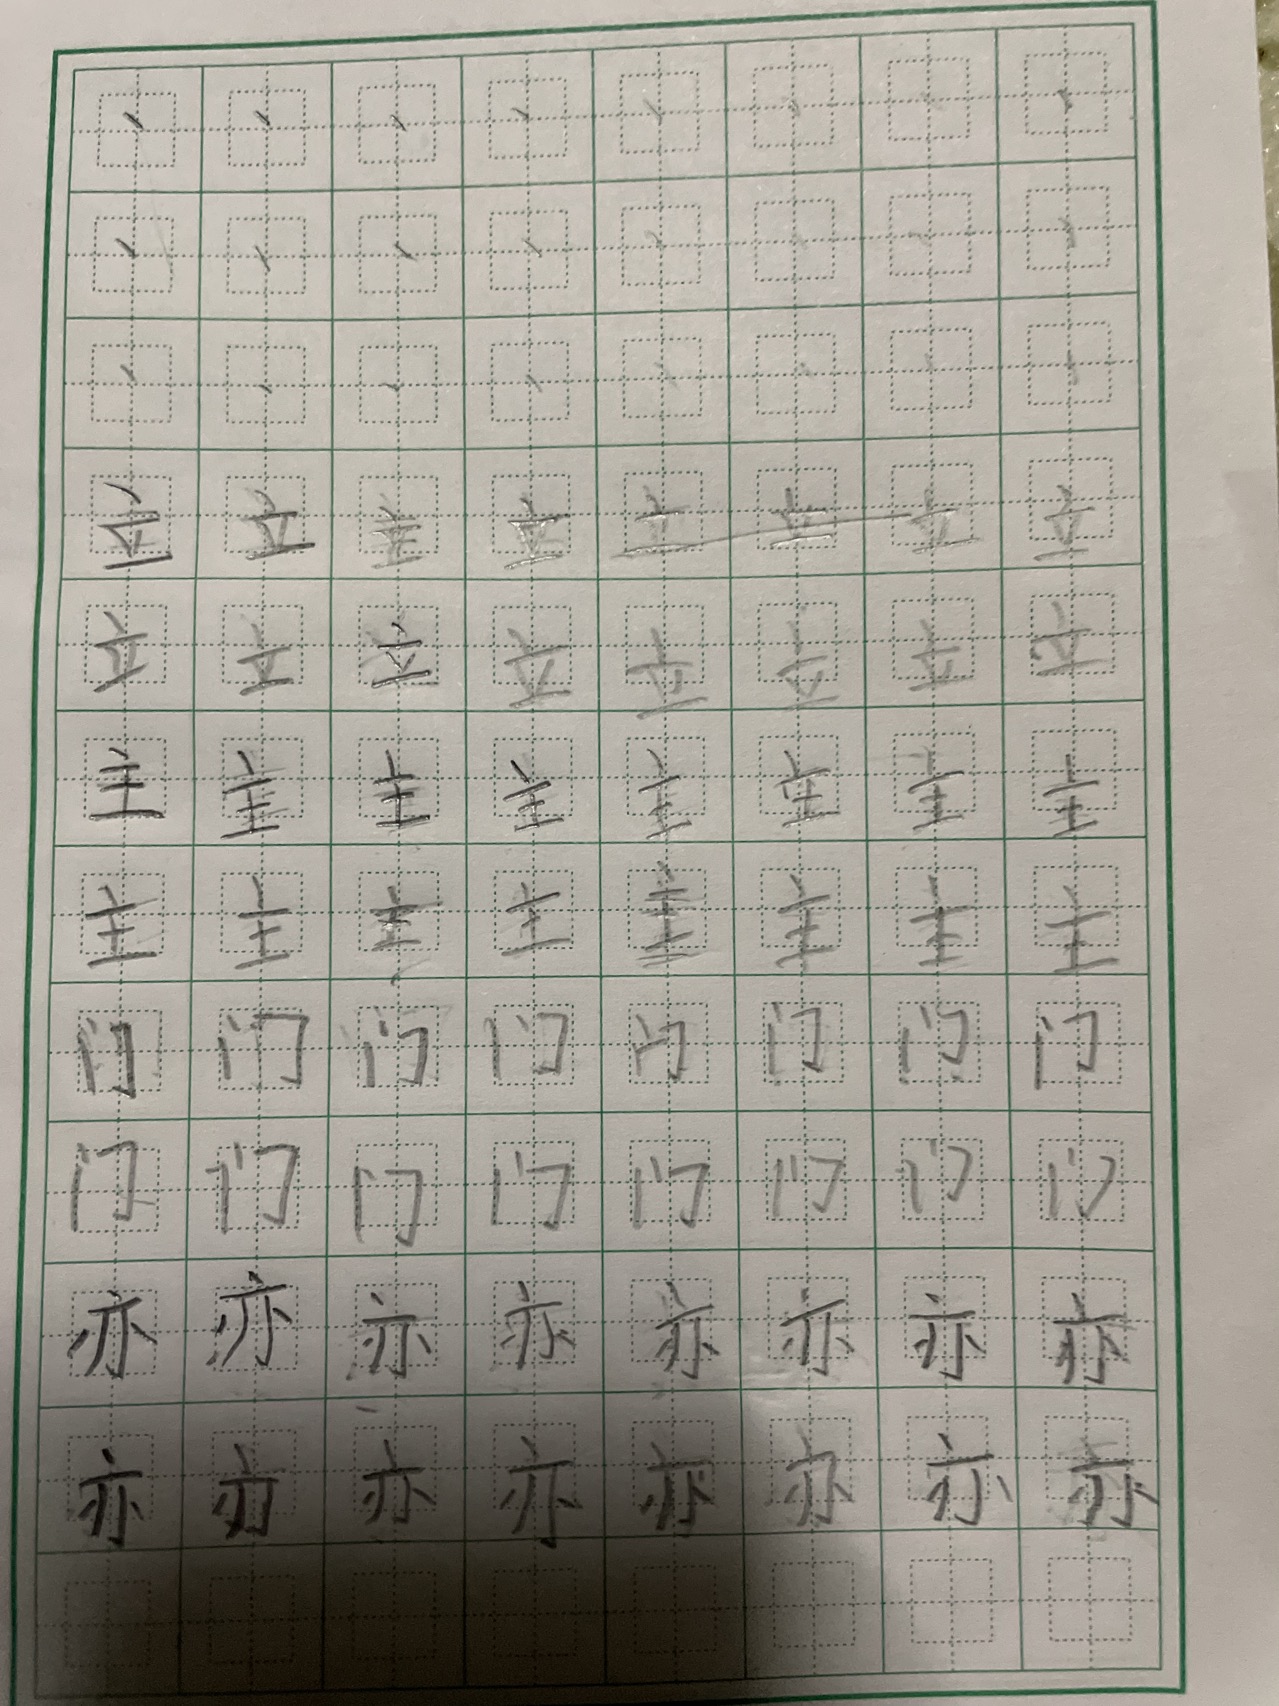 丶丶丶丶丶丶丶丶
丶丶丶丶丶丶丶丶
丶丶丶丶丶丶丶丶
立立立立立立立立
立立立立立立立立
主主主主主主主主
主主主主主主主主
门门门门门门门门
门门门门门门门门
亦亦亦亦亦亦亦亦
亦亦亦亦亦亦亦亦